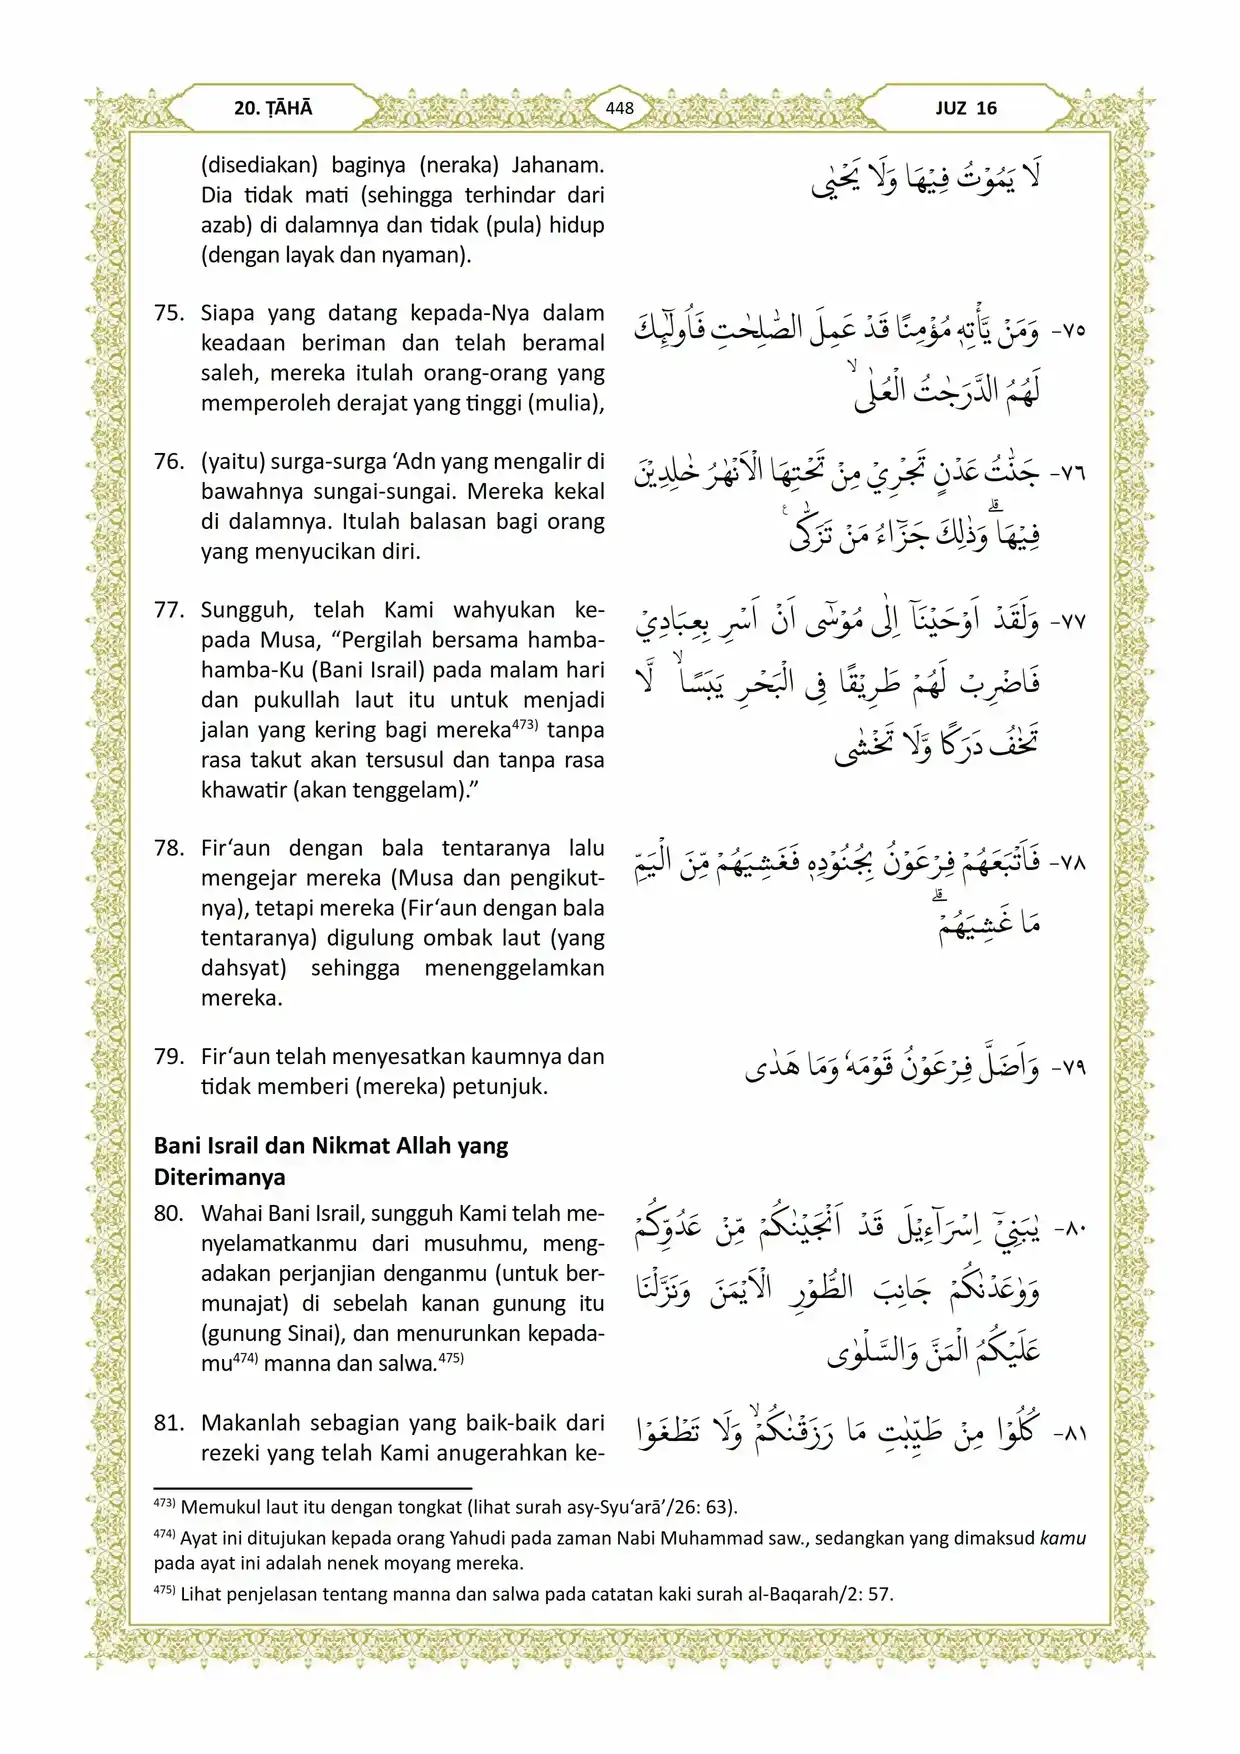 20. ṬĀHĀ
448
JUZ 16
(disediakan) baginya (neraka) Jahanam.
Dia tidak mati (sehingga terhindar dari
azab) di dalamnya dan tidak (pula) hidup
(dengan layak dan nyaman).
لَا يَمُوْتُ فِيْهَا وَلَا يَحْيٰى
75. Siapa yang datang kepada-Nya dalam
keadaan beriman dan telah beramal
saleh, mereka itulah orang-orang yang
memperoleh derajat yang tinggi (mulia),
٧٥- وَمَنْ يَّأْتِهٖ مُؤْمِنًا قَدْ عَمِلَ الصّٰلِحٰتِ فَاُولٰۤىِٕكَ
لَهُمُ الدَّرَجٰتُ الْعُلٰىۙ
76. (yaitu) surga-surga ‘Adn yang mengalir di
bawahnya sungai-sungai. Mereka kekal
di dalamnya. Itulah balasan bagi orang
yang menyucikan diri.
٧٦- جَنّٰتُ عَدْنٍ تَجْرِيْ مِنْ تَحْتِهَا الْاَنْهٰرُ خٰلِدِيْنَ
فِيْهَاۗ وَذٰلِكَ جَزٰۤءُ مَنْ تَزَكّٰى ࣖ
77. Sungguh, telah Kami wahyukan ke-
pada Musa, “Pergilah bersama hamba-
hamba-Ku (Bani Israil) pada malam hari
dan pukullah laut itu untuk menjadi
jalan yang kering bagi mereka473) tanpa
rasa takut akan tersusul dan tanpa rasa
khawatir (akan tenggelam).”
٧٧- وَلَقَدْ اَوْحَيْنَآ اِلٰى مُوْسٰٓى اَنْ اَسْرِ بِعِبَادِيْ
فَاضْرِبْ لَهُمْ طَرِيْقًا فِى الْبَحْرِ يَبَسًاۙ لَّا
تَخٰفُ دَرَكًا وَّلَا تَخْشٰى
78. Fir‘aun dengan bala tentaranya lalu
mengejar mereka (Musa dan pengikut-
nya), tetapi mereka (Fir‘aun dengan bala
tentaranya) digulung ombak laut (yang
dahsyat) sehingga menenggelamkan
mereka.
٧٨- فَاَتْبَعَهُمْ فِرْعَوْنُ بِجُنُوْدِهٖ فَغَشِيَهُمْ مِّنَ الْيَمِّ
مَا غَشِيَهُمْۗ
79. Fir‘aun telah menyesatkan kaumnya dan
tidak memberi (mereka) petunjuk.
٧٩- وَاَضَلَّ فِرْعَوْنُ قَوْمَهٗ وَمَا هَدٰى
Bani Israil dan Nikmat Allah yang
Diterimanya
80. Wahai Bani Israil, sungguh Kami telah me-
nyelamatkanmu dari musuhmu, meng-
adakan perjanjian denganmu (untuk ber-
munajat) di sebelah kanan gunung itu
(gunung Sinai), dan menurunkan kepada-
mu474) manna dan salwa.475)
٨٠- يٰبَنِيْٓ اِسْرَاۤءِيْلَ قَدْ اَنْجَيْنٰكُمْ مِّنْ عَدُوِّكُمْ
وَوٰعَدْنٰكُمْ جَانِبَ الطُّوْرِ الْاَيْمَنَ وَنَزَّلْنَا
عَلَيْكُمُ الْمَنَّ وَالسَّلْوٰى
81. Makanlah sebagian yang baik-baik dari
rezeki yang telah Kami anugerahkan ke-
٨١- كُلُوْا مِنْ طَيِّبٰتِ مَا رَزَقْنٰكُمْۙ وَلَا تَطْغَوْا
473) Memukul laut itu dengan tongkat (lihat surah asy-Syu‘arā’/26: 63).
474) Ayat ini ditujukan kepada orang Yahudi pada zaman Nabi Muhammad saw., sedangkan yang dimaksud kamu
pada ayat ini adalah nenek moyang mereka.
475) Lihat penjelasan tentang manna dan salwa pada catatan kaki surah al-Baqarah/2: 57.